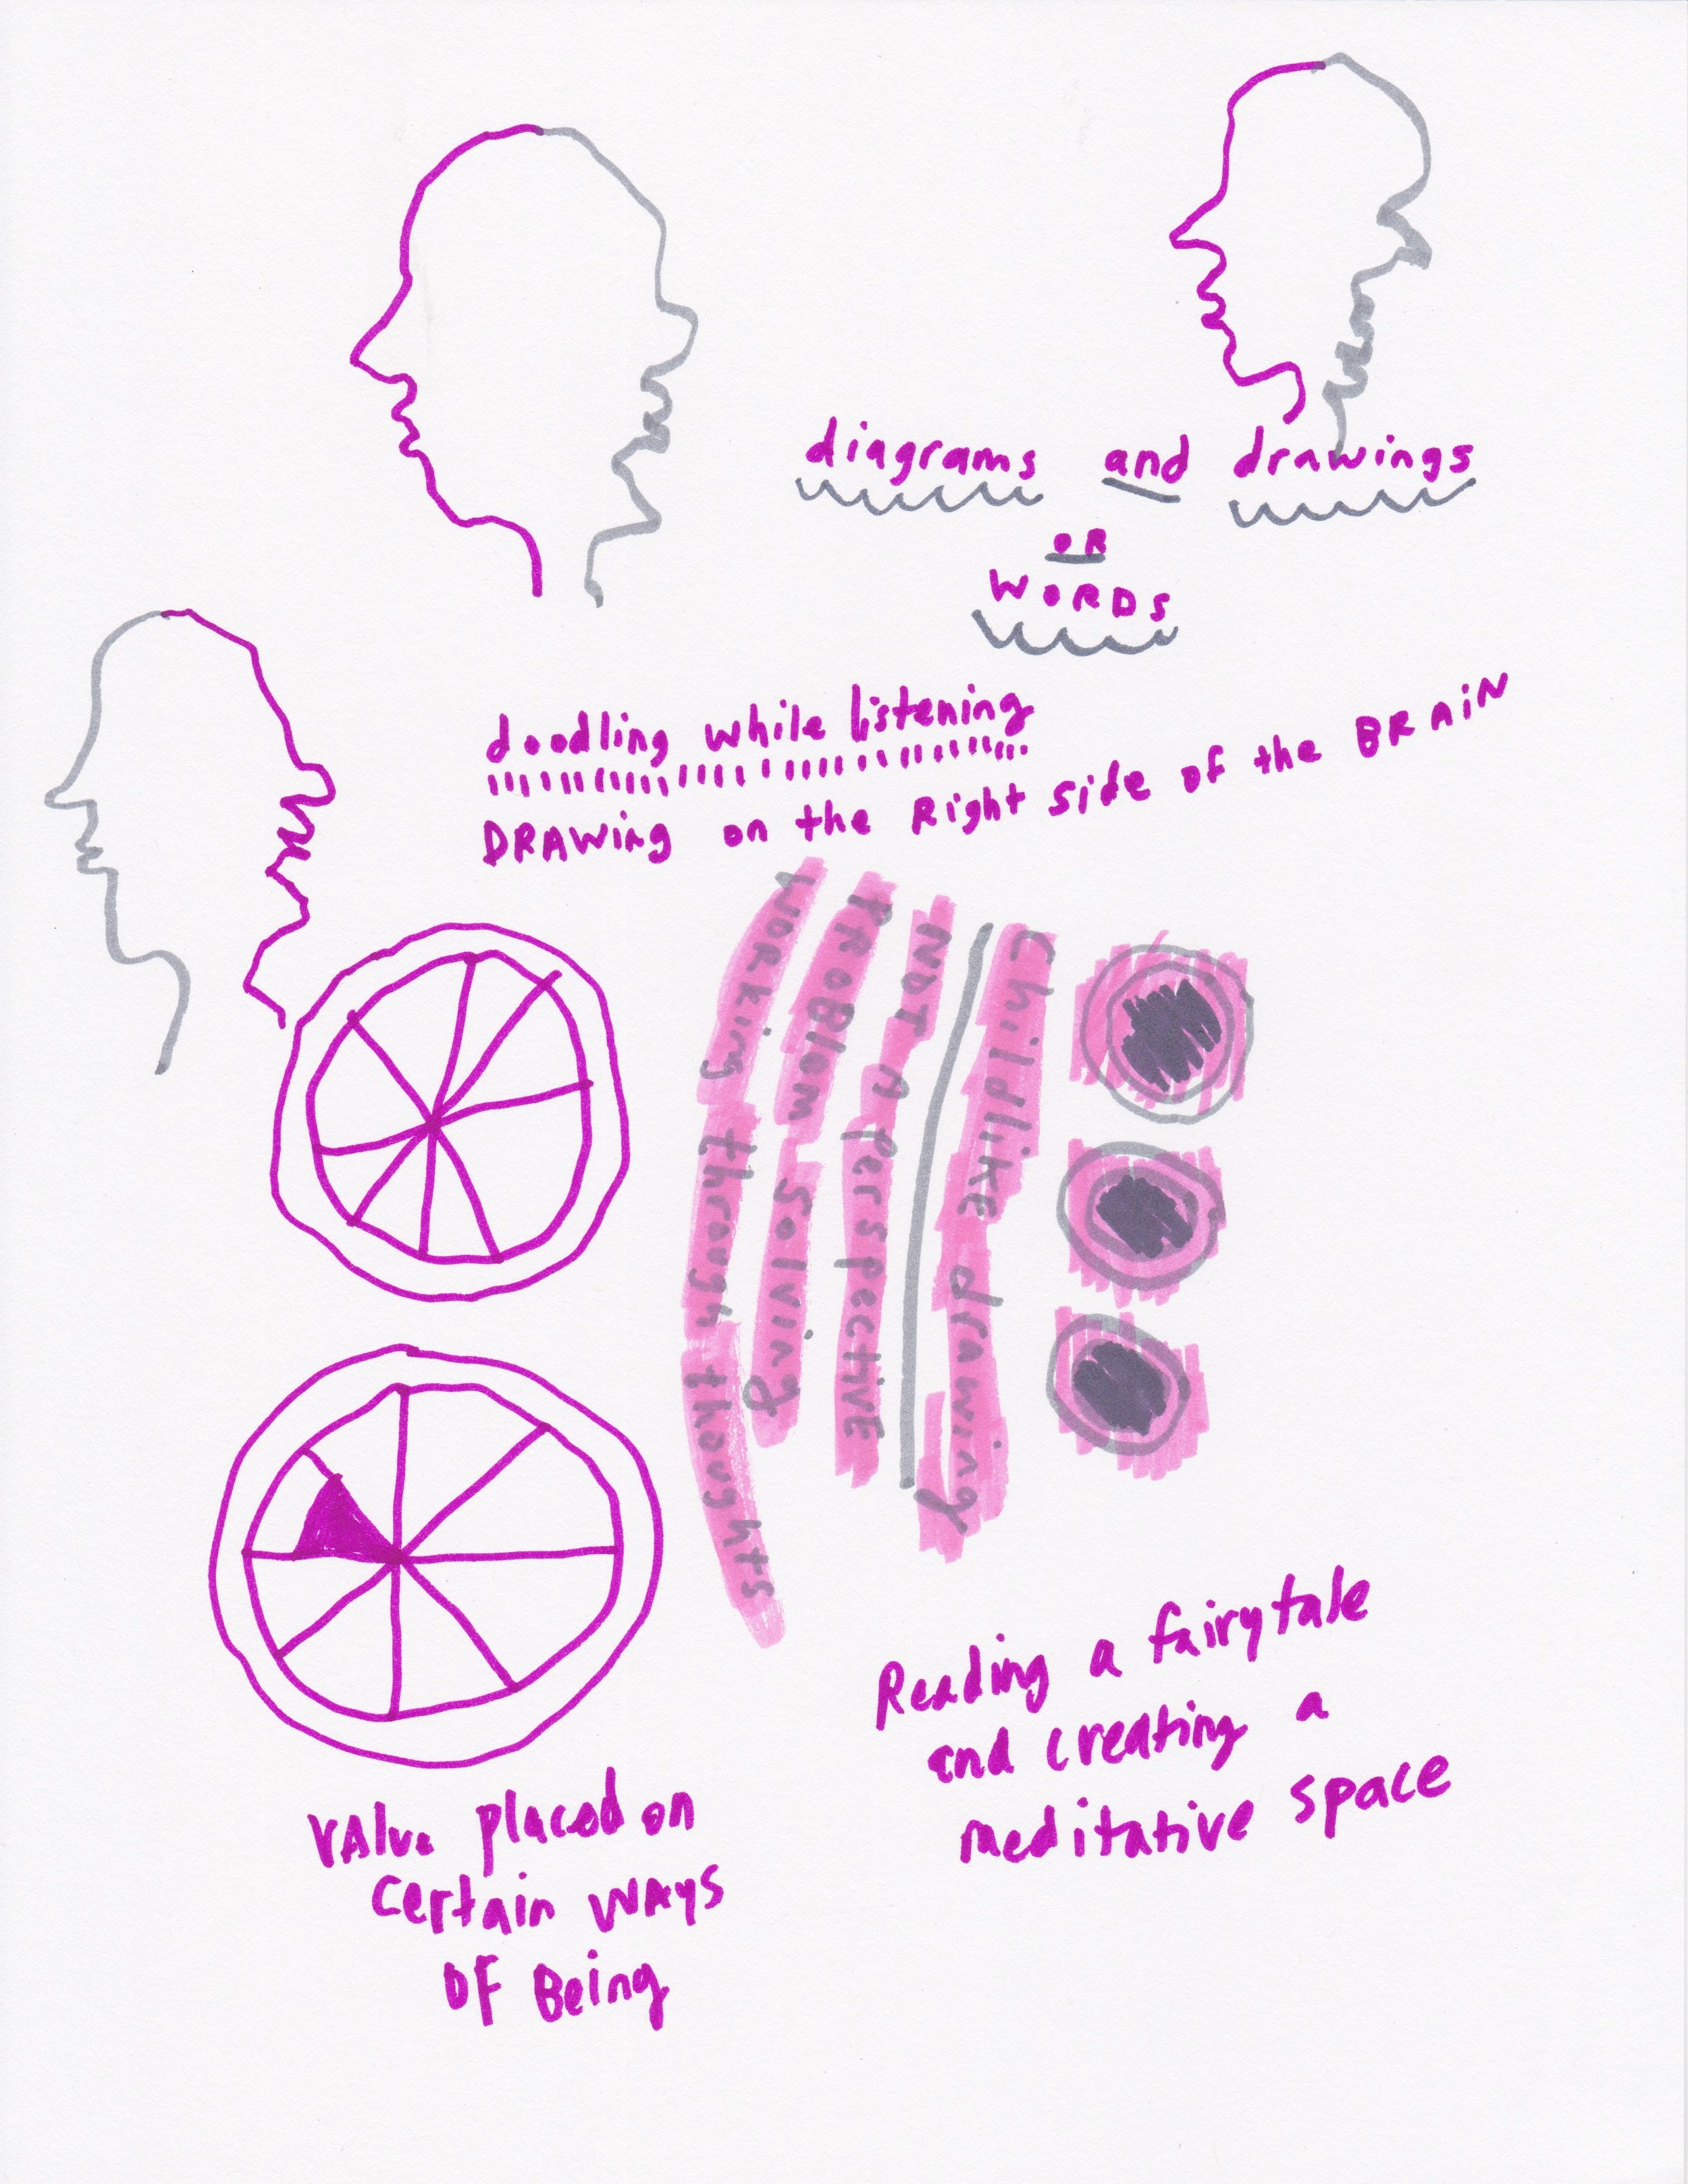 diagrams and drawings
OR
WORDS
doodling while listening
DRAWing on the Right side of the BRAiN
Childlike drawing
NOT A perspective
PROBlem Solving
Working through thoughts
Reading a fairytale
and creating a
meditative space
VAlue placed on
Certain WAys
OF Being